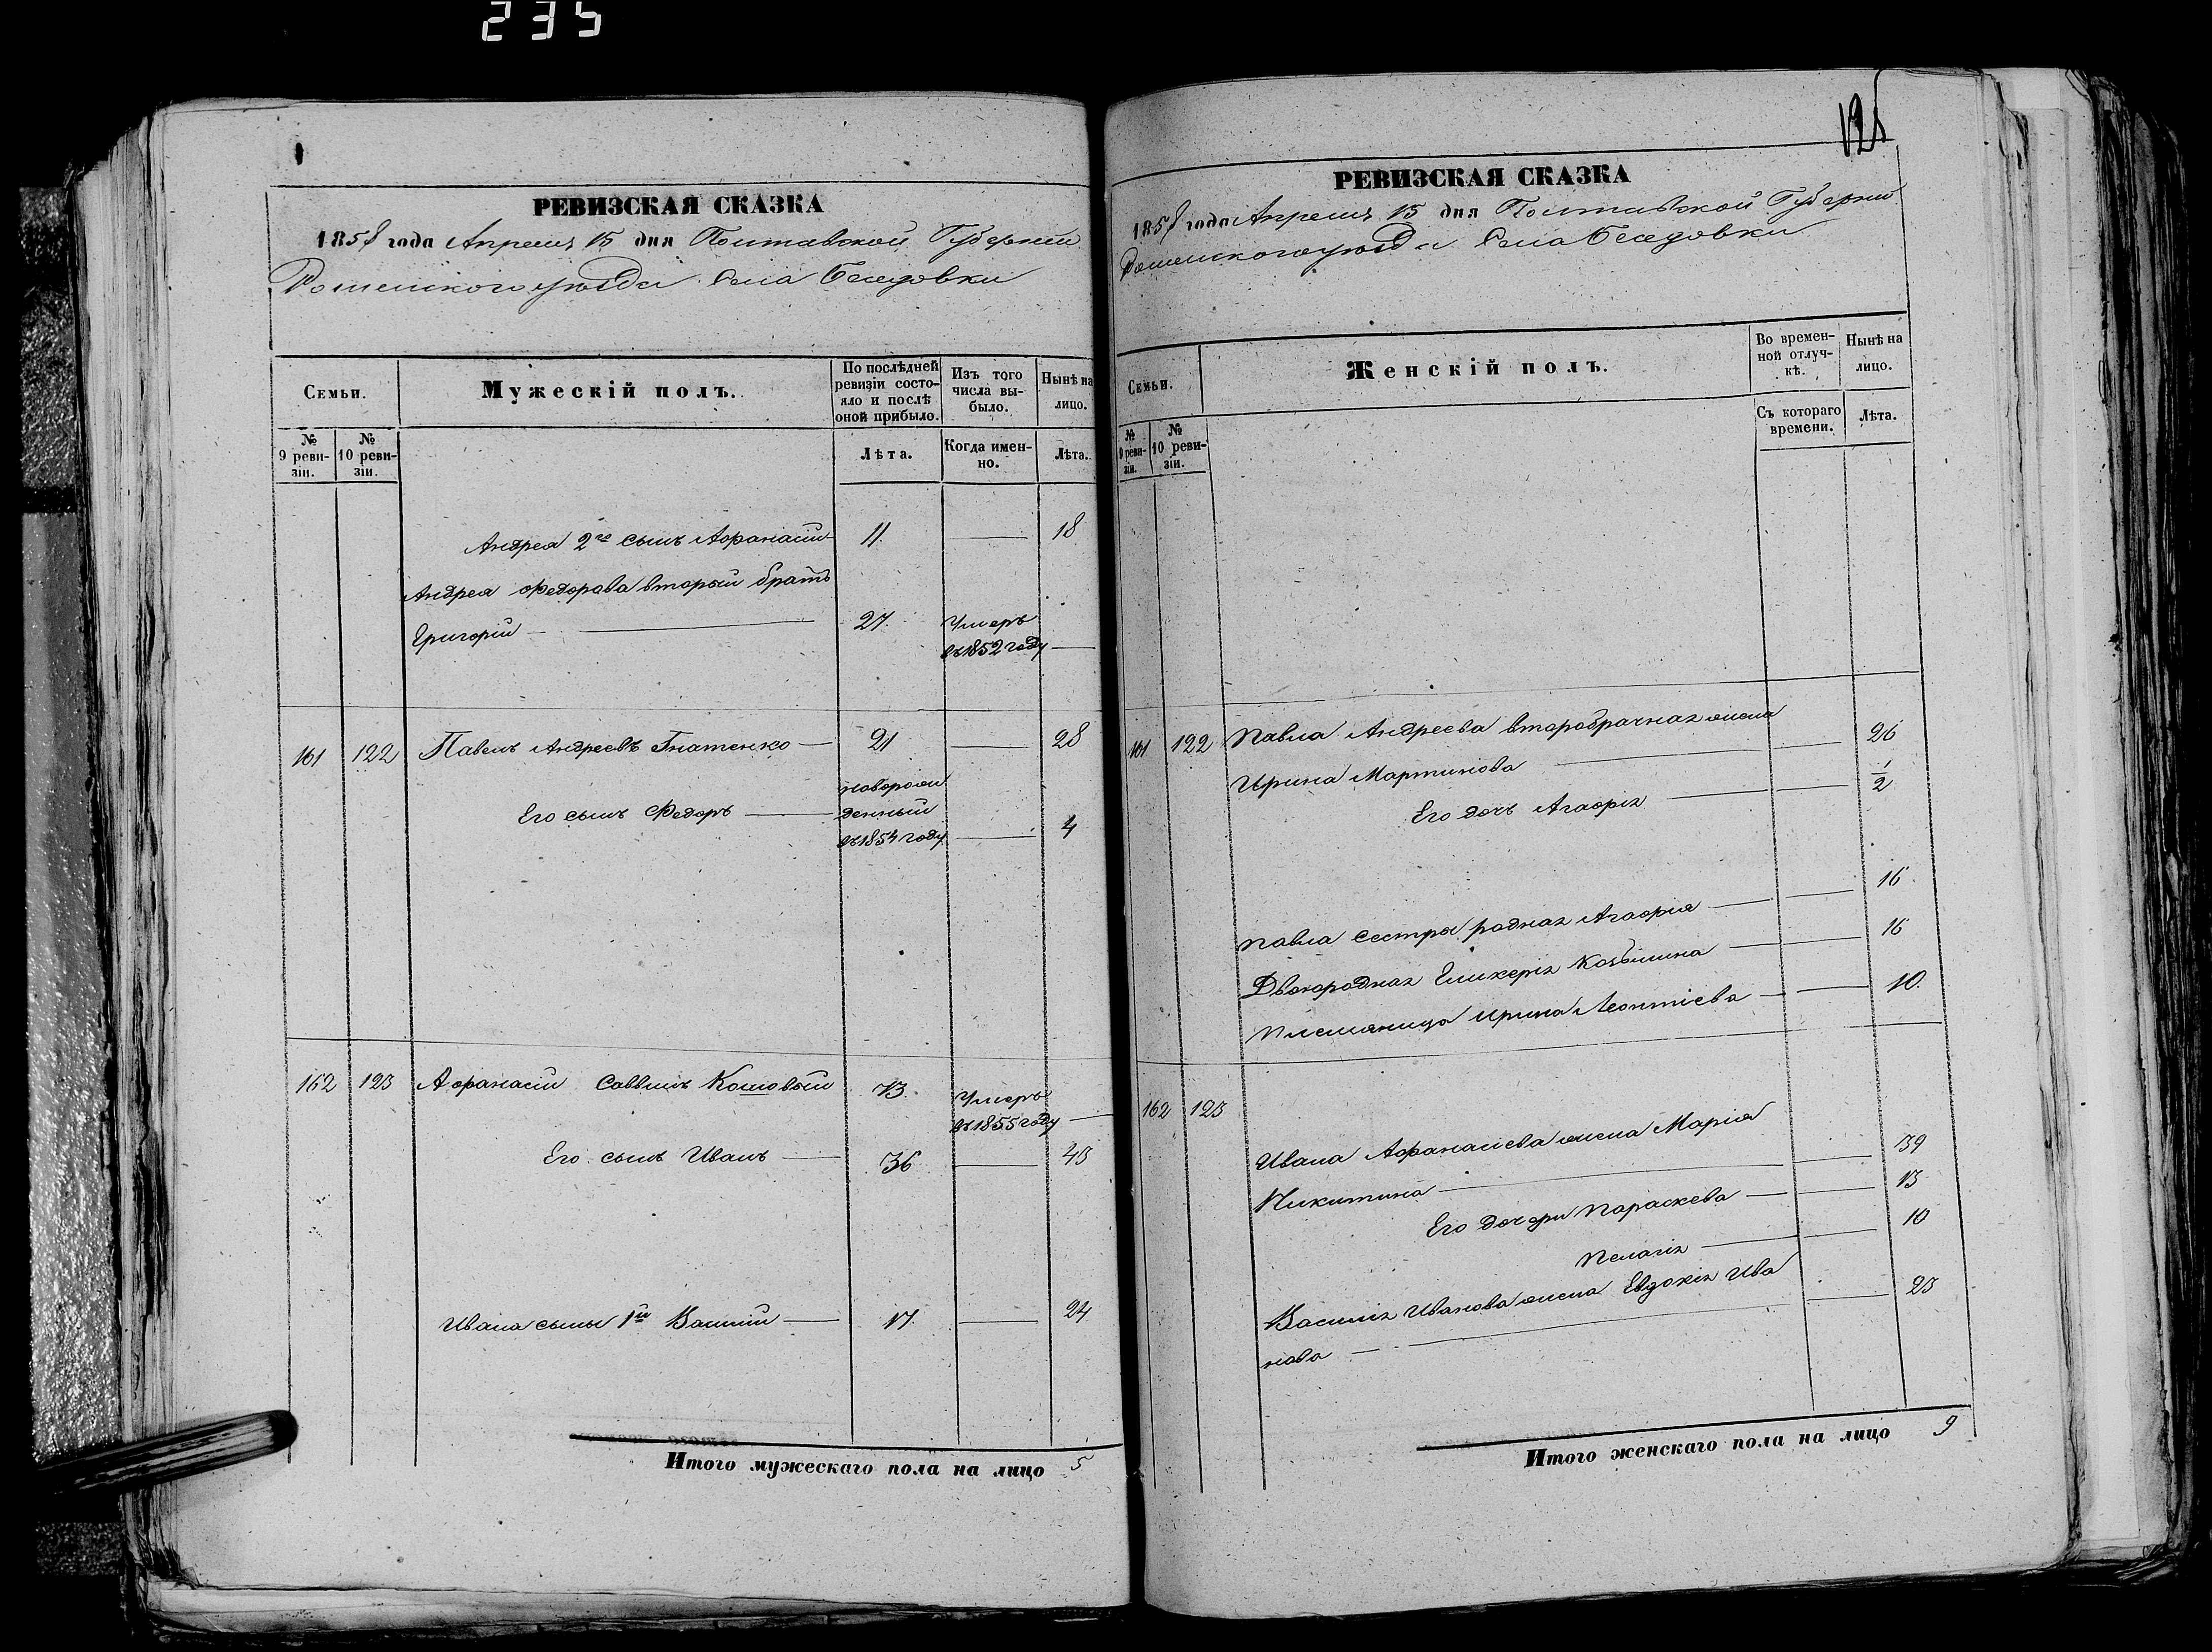 235
РЕВИЗСКАЯ СКАЗКА
1858 года Апреля 15 дня Полтавской Губерніи
Роменского уѣзда Села Беседовки
Семьи.
Мужескій полъ.
По послѣдней ревизіи состо-
яло и послѣ оной прибыло.
Изъ того числа вы-
было.
Нынѣ на лицо.
№ 9 реви-
зіи.
№ 10 реви-
зіи.
Лѣта.
Когда имен-
но.
Лѣта.
Андрея 2го сынъ Афанасій 11 18
Андрея Федорова вторый братъ
Григорій 27 Умеръ
въ 1852 году
161 122 Павелъ Андреевъ Гнатенко 21 28
новорож
Его сынъ Федоръ денный
въ 1854 году 4
162 123 Афанасій Саввинъ Кошовый 73 Умеръ
въ 1855 году
Его сынъ Иванъ 36 43
Ивана сыны 1й Василій 17 24
Итого мужескаго пола на лицо 5
125
РЕВИЗСКАЯ СКАЗКА
1858 года Апреля 15 дня Полтавской Губерніи
Роменского уѣзда Села Беседовки
Семьи.
Женскій полъ.
Во времен-
ной отлуч-
кѣ.
Нынѣ на лицо.
№ 9 реви-
зіи.
№ 10 реви-
зіи.
Съ котораго времени.
Лѣта.
161 122 Павла Андреева второбрачная жена
Ирина Мартинова 26
Его дочь Агафія 1/2
Павла сестра родная Агафія 16
Двоюродная Гликерія Козьмина 16
Племяница Ирина Леонтіева 10
162 123
Ивана Афанасиева жена Марія
Никитина 39
Его дочери Параскева 13
Пелагія 10
Василія Иванова жена Евдокія Ива
нова 23
Итого женскаго пола на лицо 9